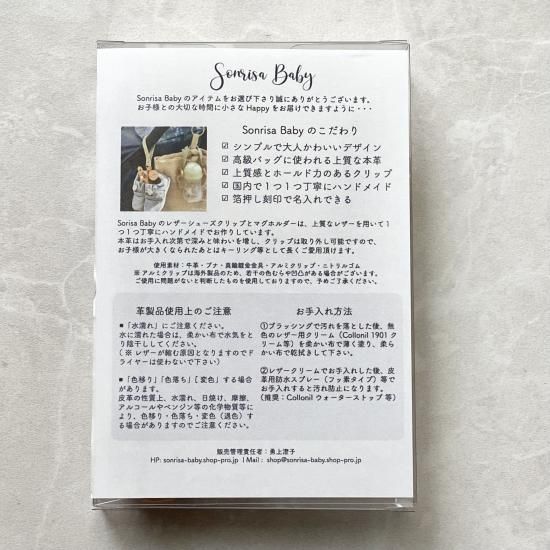 Sonrisa Baby
Sonrisa Baby のアイテムをお選び下さり誠にありがとうございます。
お子様との大切な時間に小さな Happy をお届けできますように・・・
Sonrisa Baby のこだわり
☑ シンプルで大人かわいいデザイン
☑ 高級バッグに使われる上質な本革
☑ 上質感とホールド力のあるクリップ
☑ 国内で1つ1つ丁寧にハンドメイド
☑ 箔押し刻印で名入れできる
Sorisa Baby のレザーシューズクリップとマグホルダーは、上質なレザーを用いて1
つ1つ丁寧にハンドメイドでお作りしています。
本革はお手入れ次第で深みと味わいを増し、クリップは取り外し可能ですので、
お子様が大きくなられたあとはキーリング等として長くご愛用頂けます。
使用素材:牛革・ブナ・真鍮鍍金金具・アルミクリップ・ニトリルゴム
※ アルミクリップは海外製品のため、若干の色むらや凹凸がある場合がございます。
ご使用に問題がないと判断したものを使用しておりますので、予めご了承ください。
革製品使用上のご注意
■「水濡れ」にご注意ください。
水に濡れた場合は、柔かい布で水気をと
り陰干ししてください。
(※ レザーが縮む原因となりますのでド
ライヤーは使わないで下さい)
■「色移り」「色落ち」「変色」する場合
があります。
皮革の性質上、水濡れ、日焼け、摩擦、
アルコールやベンジン等の化学物質等に
より、色移り・色落ち・変色(退色)す
る場合がありますのでご注意ください。
お手入れ方法
①ブラッシングで汚れを落とした後、無
色のレザー用クリーム(Collonil 1901 ク
リーム等)を柔かい布で薄く塗り、柔ら
かい布で乾拭きして下さい。
②レザークリームでお手入れした後、皮
革用防水スプレー(フッ素タイプ)等で
お手入れすると汚れ防止になります。
(推奨:Collonil ウォーターストップ 等)
販売管理責任者:勇上澄子
HP: sonrisa-baby.shop-pro.jp I Mail : shop@sonrisa-baby.shop-pro.jp